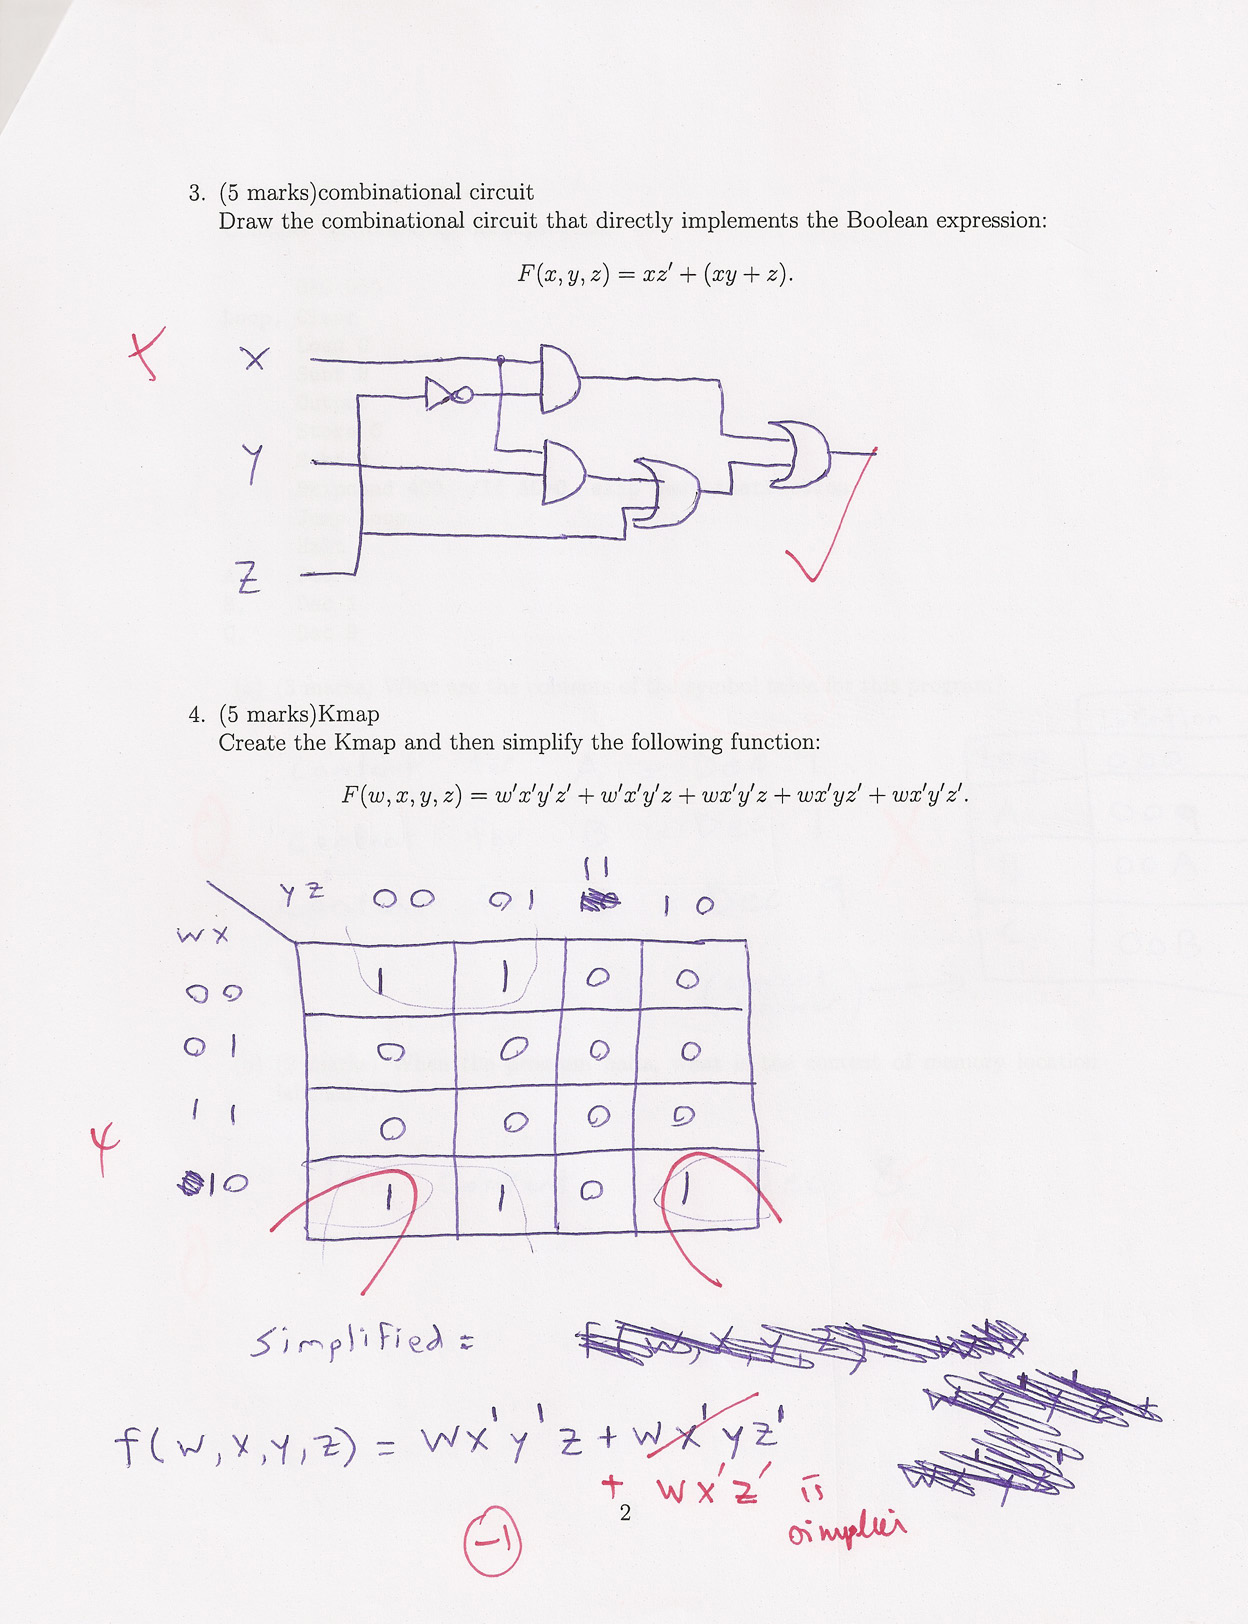 3. (5 marks)combinational circuit
Draw the combinational circuit that directly implements the Boolean expression:
F(x, y, z) = xz′ + (xy + z).
X
Y
Z
4. (5 marks)Kmap
Create the Kmap and then simplify the following function:
F(w, x, y, z) = w′x′y′z′ + w′x′y′z + wx′y′z + wx′yz′ + wx′y′z′.
11
YZ 00 01 10
WX
00 1 1 0 0
01 0 0 0 0
11 0 0 0 0
4
10 1 1 0 1
Simplified =
f(W,X,Y,Z) = WX'Y'Z + WX'YZ'
+ WX'Z' is
simplier
2
-1